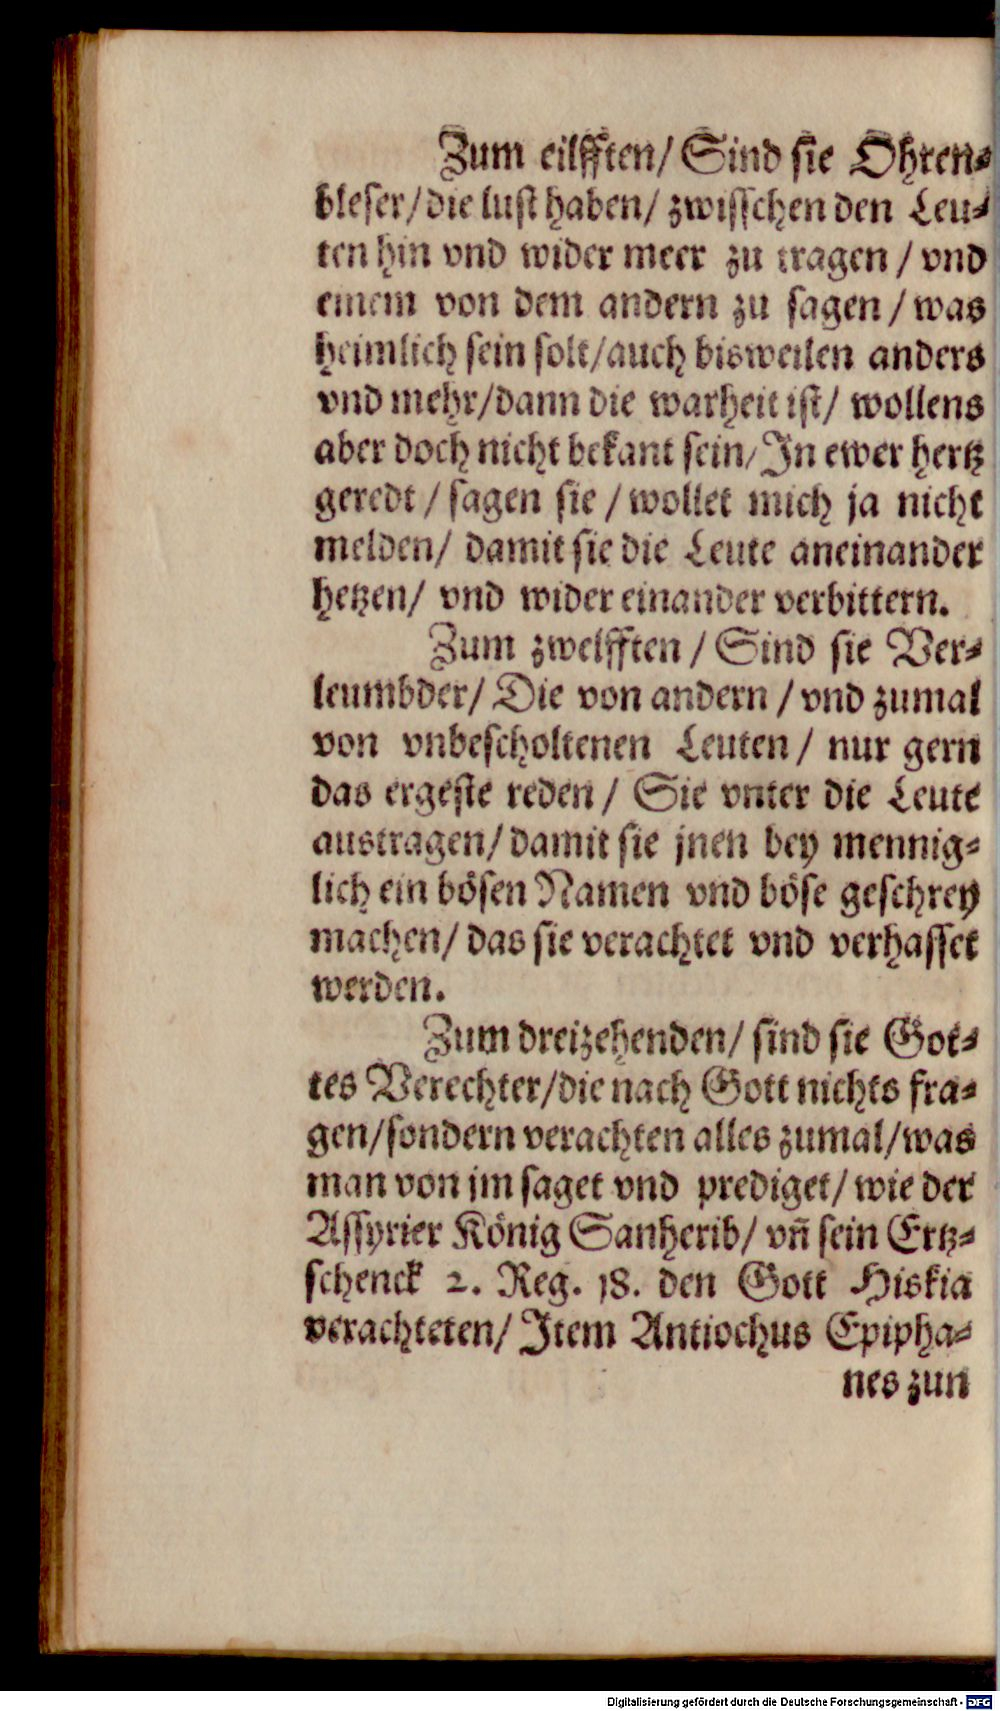 Zum eilfften/ Sind sie Ohren-
bleser/die lust haben/ zwisschen den Leu-
ten hin vnd wider meer zu tragen / vnd
einem von dem andern zu sagen / was
heimlich sein solt/auch bisweilen anders
vnd mehr/dann die warheit ist/ wollens
aber doch nicht bekant sein/In ewer hertz
geredt / sagen sie / wollet mich ja nicht
melden/ damit sie die Leute aneinander
hetzen/ vnd wider einander verbittern.
Zum zwelfften / Sind sie Ver-
leumbder/ Die von andern / vnd zumal
von vnbescholtenen Leuten / nur gern
das ergeste reden / Sie vnter die Leute
austragen/ damit sie jnen bey mennig-
lich ein bösen Namen vnd böse geschrey
machen/ das sie verachtet vnd verhasset
werden.
Zum dreizehenden/ sind sie Got-
tes Verechter/die nach Gott nichts fra-
gen/sondern verachten alles zumal/was
man von jm saget vnd prediget/ wie der
Assyrier König Sanherib/ vñ sein Ertz-
schenck 2. Reg. 18. den Gott Hiskia
verachteten/ Item Antiochus Epipha-
nes zun
Digitalisierung gefördert durch die Deutsche Forschungsgemeinschaft - DFG